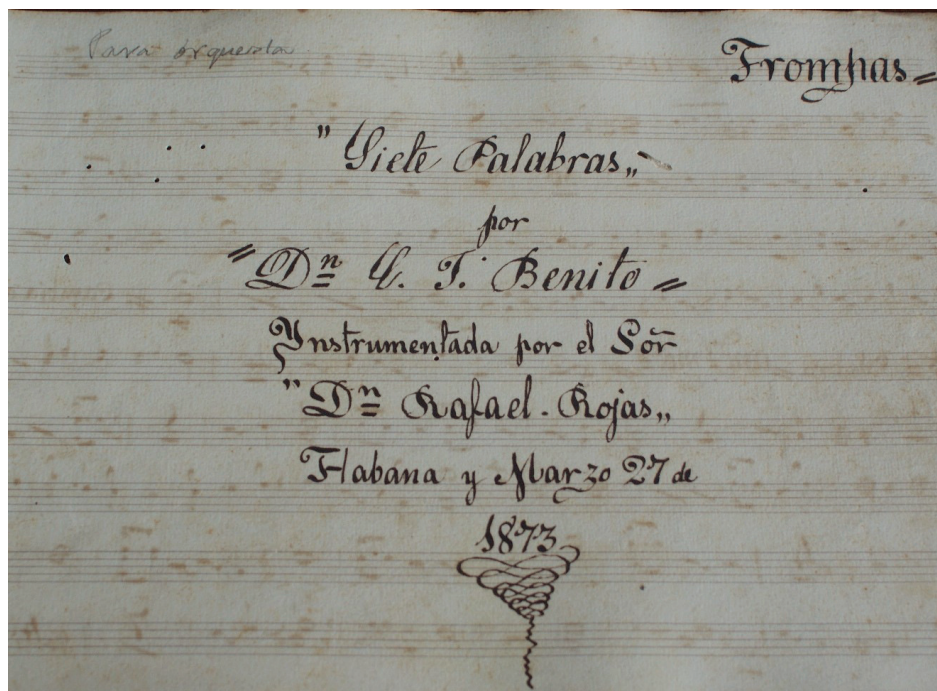 Para orquesta
Trompas =
" Siete Palabras „
por
= Dn C. T. Benito =
Ynstrumentada por el Sor̃
" Dn Rafael. Rojas „
Habana y Marzo 27 de
1873